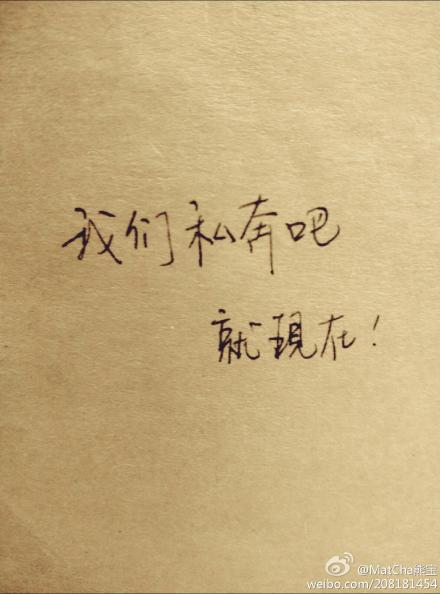 我们私奔吧
就現在！
@MatCha熊宝
weibo.com/208181454